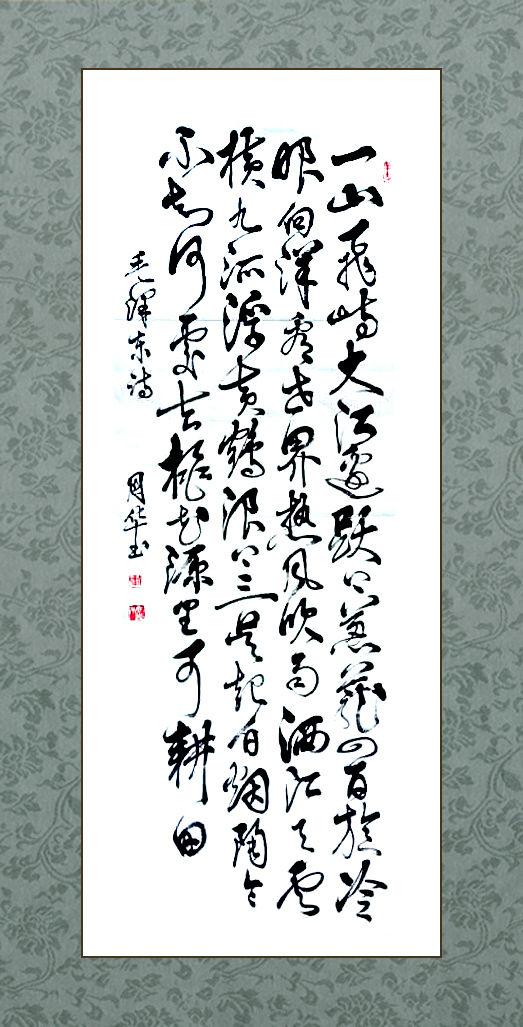 一山飛峙大江邊跃上葱蘢四百旋冷
眼向洋看世界热风吹雨洒江天雲
横九派浮黄鶴浪下三吴起白烟陶令
不知何處去桃花源里可耕田
毛澤东诗
周华书